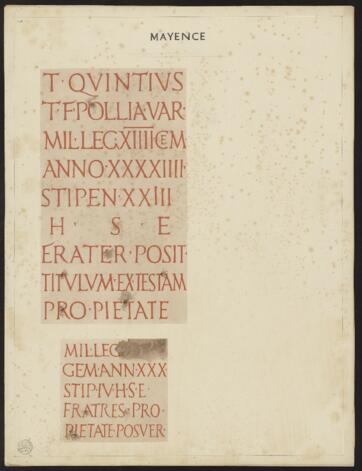 MAYENCE
T · QVINTIVS
T·F·POLLIA·VAR·
MIL·LEG·XIIII GEM
ANNO·XXXXIIII
STIPEN·XXIII
H S E
FRATER·POSIT·
TITVLVM·EX·TESTAM
PRO·PIETATE
MIL·LEG
GEM·ANN·XXX
STIP·IV·H·S·E
FRATRES·PRO·
PIETATE·POSVER·